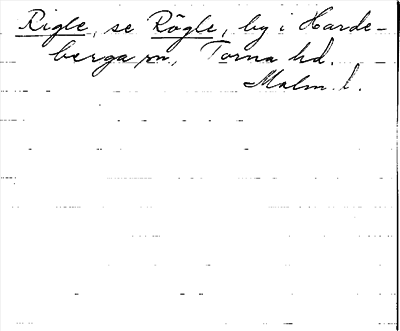 Rigle, se Rögle, by i Harde-
berga sn, Torna hd.
Malm. l.